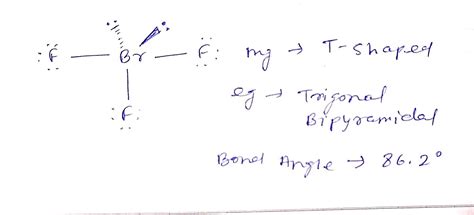 :F: — Br — F: mg → T-shaped
:F:
eg → Trigonal
Bipyramidal
Bond Angle → 86.2°